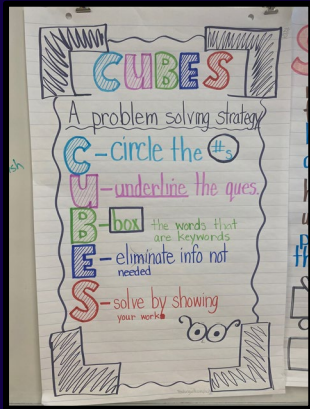 CUBES
A problem solving strategy
C-circle the #s
U-underline the ques.
B-box the words that
are keywords
E-eliminate info not
needed
S-solve by showing
your work